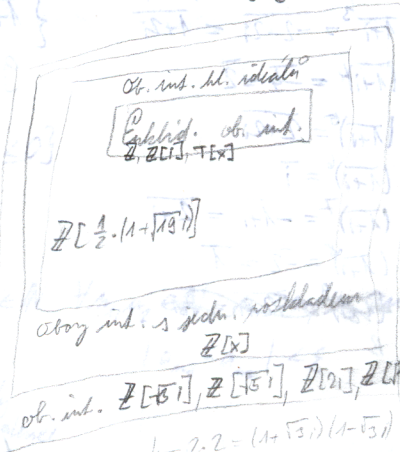 ob. int. hl. ideálů
Euklid. ob. int.
ℤ, ℤ[i], T[x]
ℤ[½·(1+√19 i)]
obory int. s jedn. rozkladem
ℤ[x]
ob. int. ℤ[√3 i], ℤ[√5 i], ℤ[2i], ℤ[
2·2 = (1+√3 i)(1-√3 i)